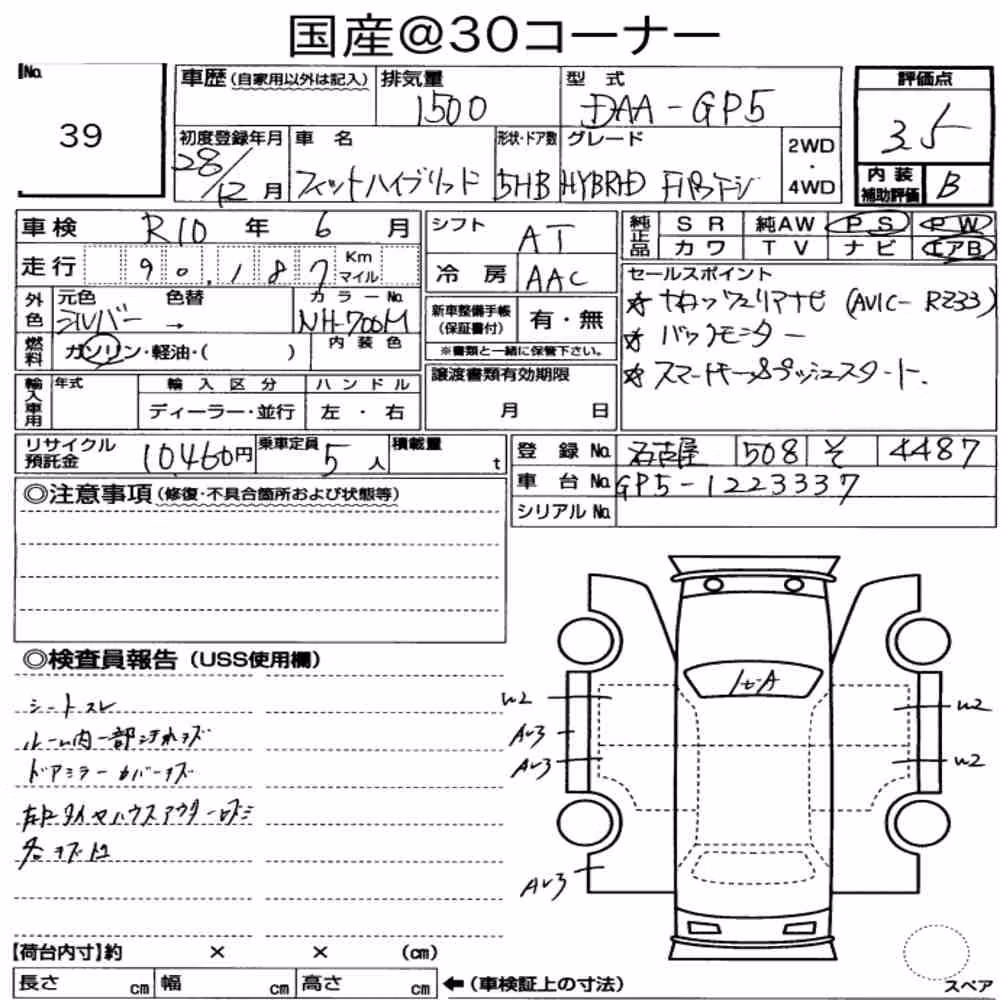 国産@30コーナー
No.
39
車歴(自家用以外は記入)
排気量
1500
型 式
DAA-GP5
評価点
3.5
初度登録年月
28/12月
車 名
フィットハイブリッド
形状・ドア数
5HB
グレード
HYBRID Fパッケージ
2WD
・
4WD
内 装
補助評価
B
車検 R10 年 6 月
シフト
AT
純正品
SR 純AW PS PW
カワ TV ナビ エアB
走行 90,187 Km マイル
冷 房
AAC
セールスポイント
(AVIC-RZ33)
バックモニター
スマートキー&プッシュスタート.
外色
元色 色替 カラーNo.
シルバー → NH-700M
新車整備手帳
(保証書付)
有・無
※書類と一緒に保管下さい。
燃料
ガソリン・軽油・( )
内装色
輸入車用
年式
輸入区分
ハンドル
ディーラー・並行
左・右
譲渡書類有効期限
月 日
リサイクル
預託金
10,460円
乗車定員
5人
積載量
t
登録No. 名古屋 508 そ 4487
車台No. GP5-1223337
シリアルNo.
◎注意事項(修復・不具合箇所および状態等)
◎検査員報告(USS使用欄)
シートスレ
ルーム内一部汚れキズ
ドアミラーカバーキズ
タイヤハウスアウター
各キズ凹
W2
W2
W2
【荷台内寸】約 × × (cm)
長さ cm 幅 cm 高さ cm ←(車検証上の寸法)
スペア